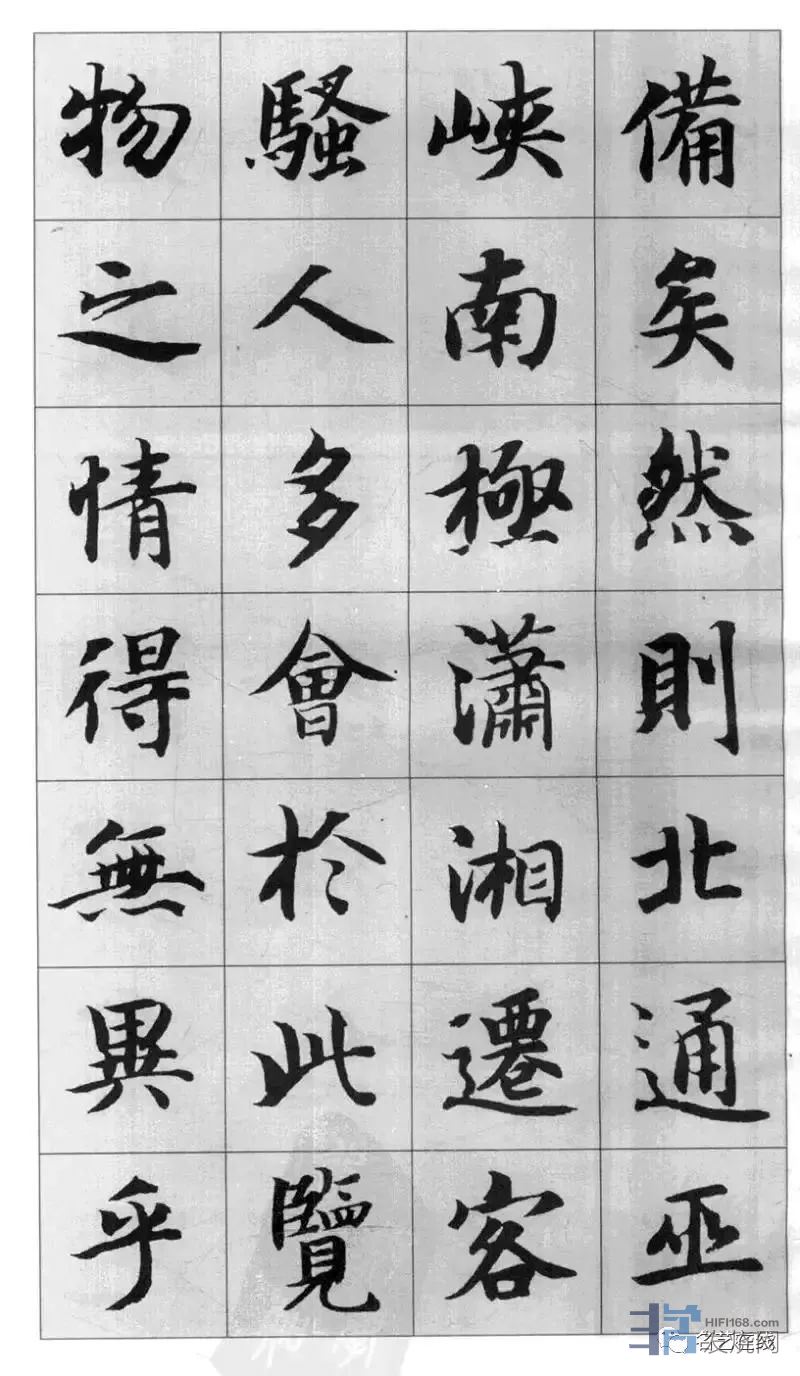 備矣然則北通巫
峽南極瀟湘遷客
騷人多會於此覽
物之情得無異乎
HIFI168.com